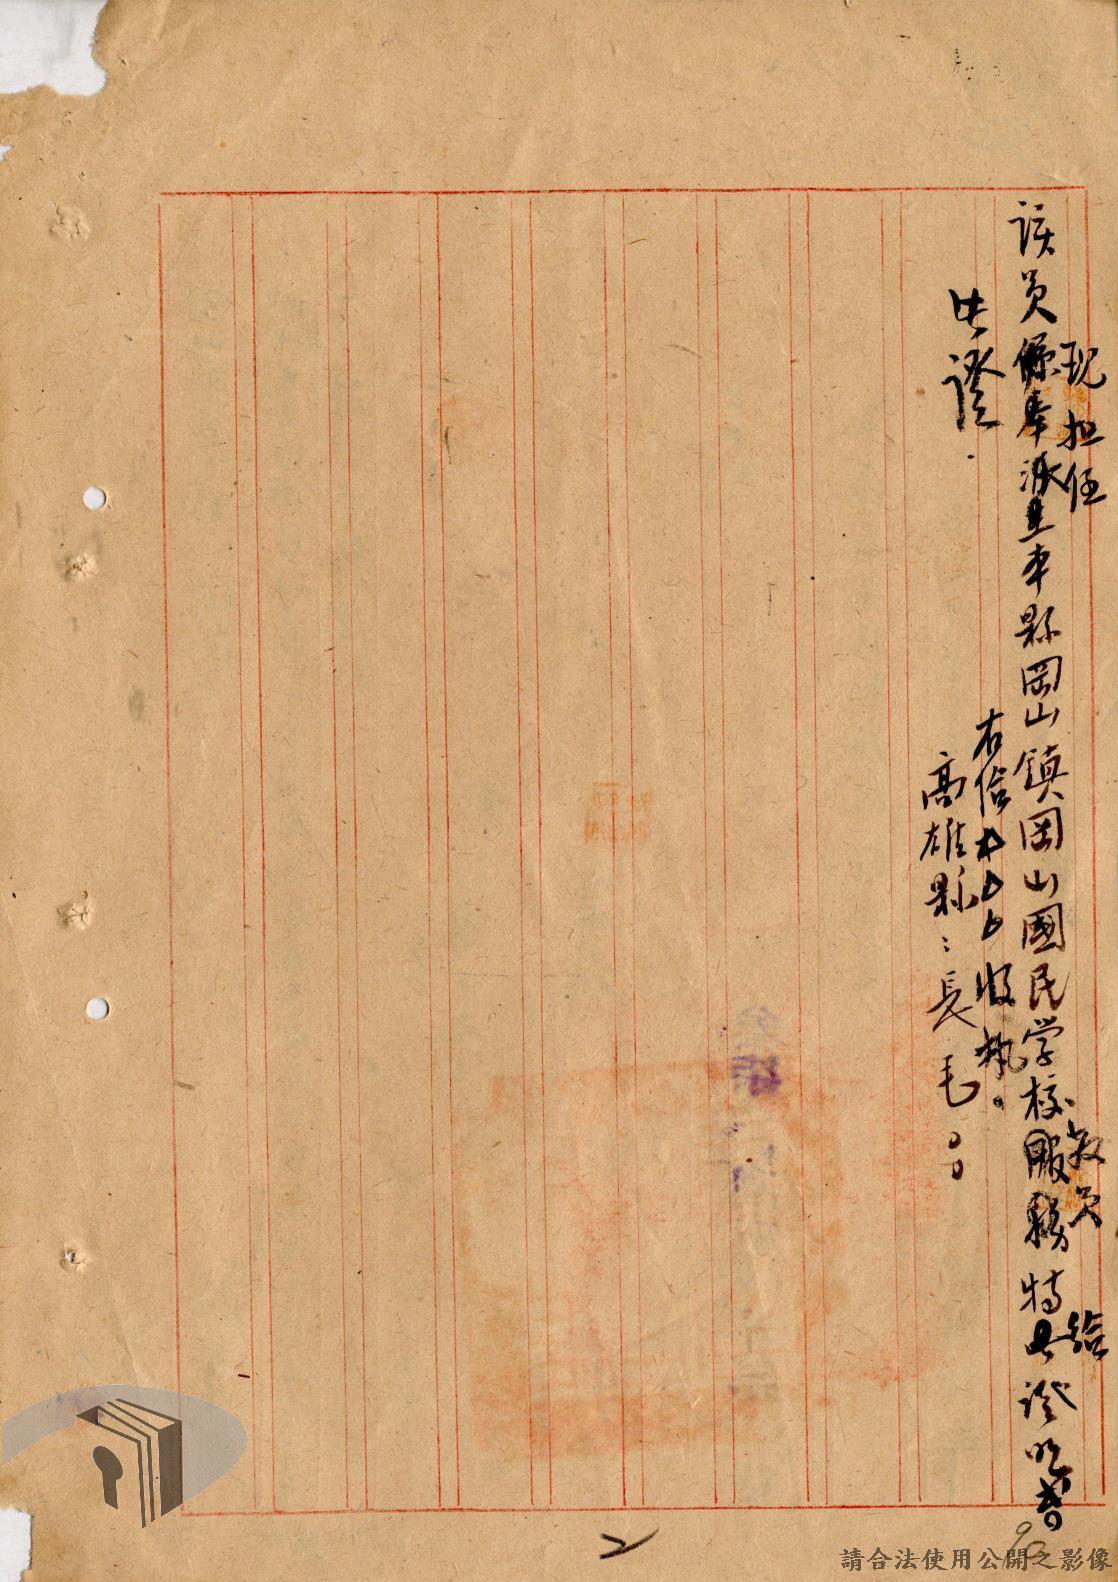 該員係奉派至本縣岡山鎮岡山國民学校服務特此證明書
現担任
教員
給
此證.
右給
收執。
高雄縣:長毛
2
90
請合法使用公開之影像